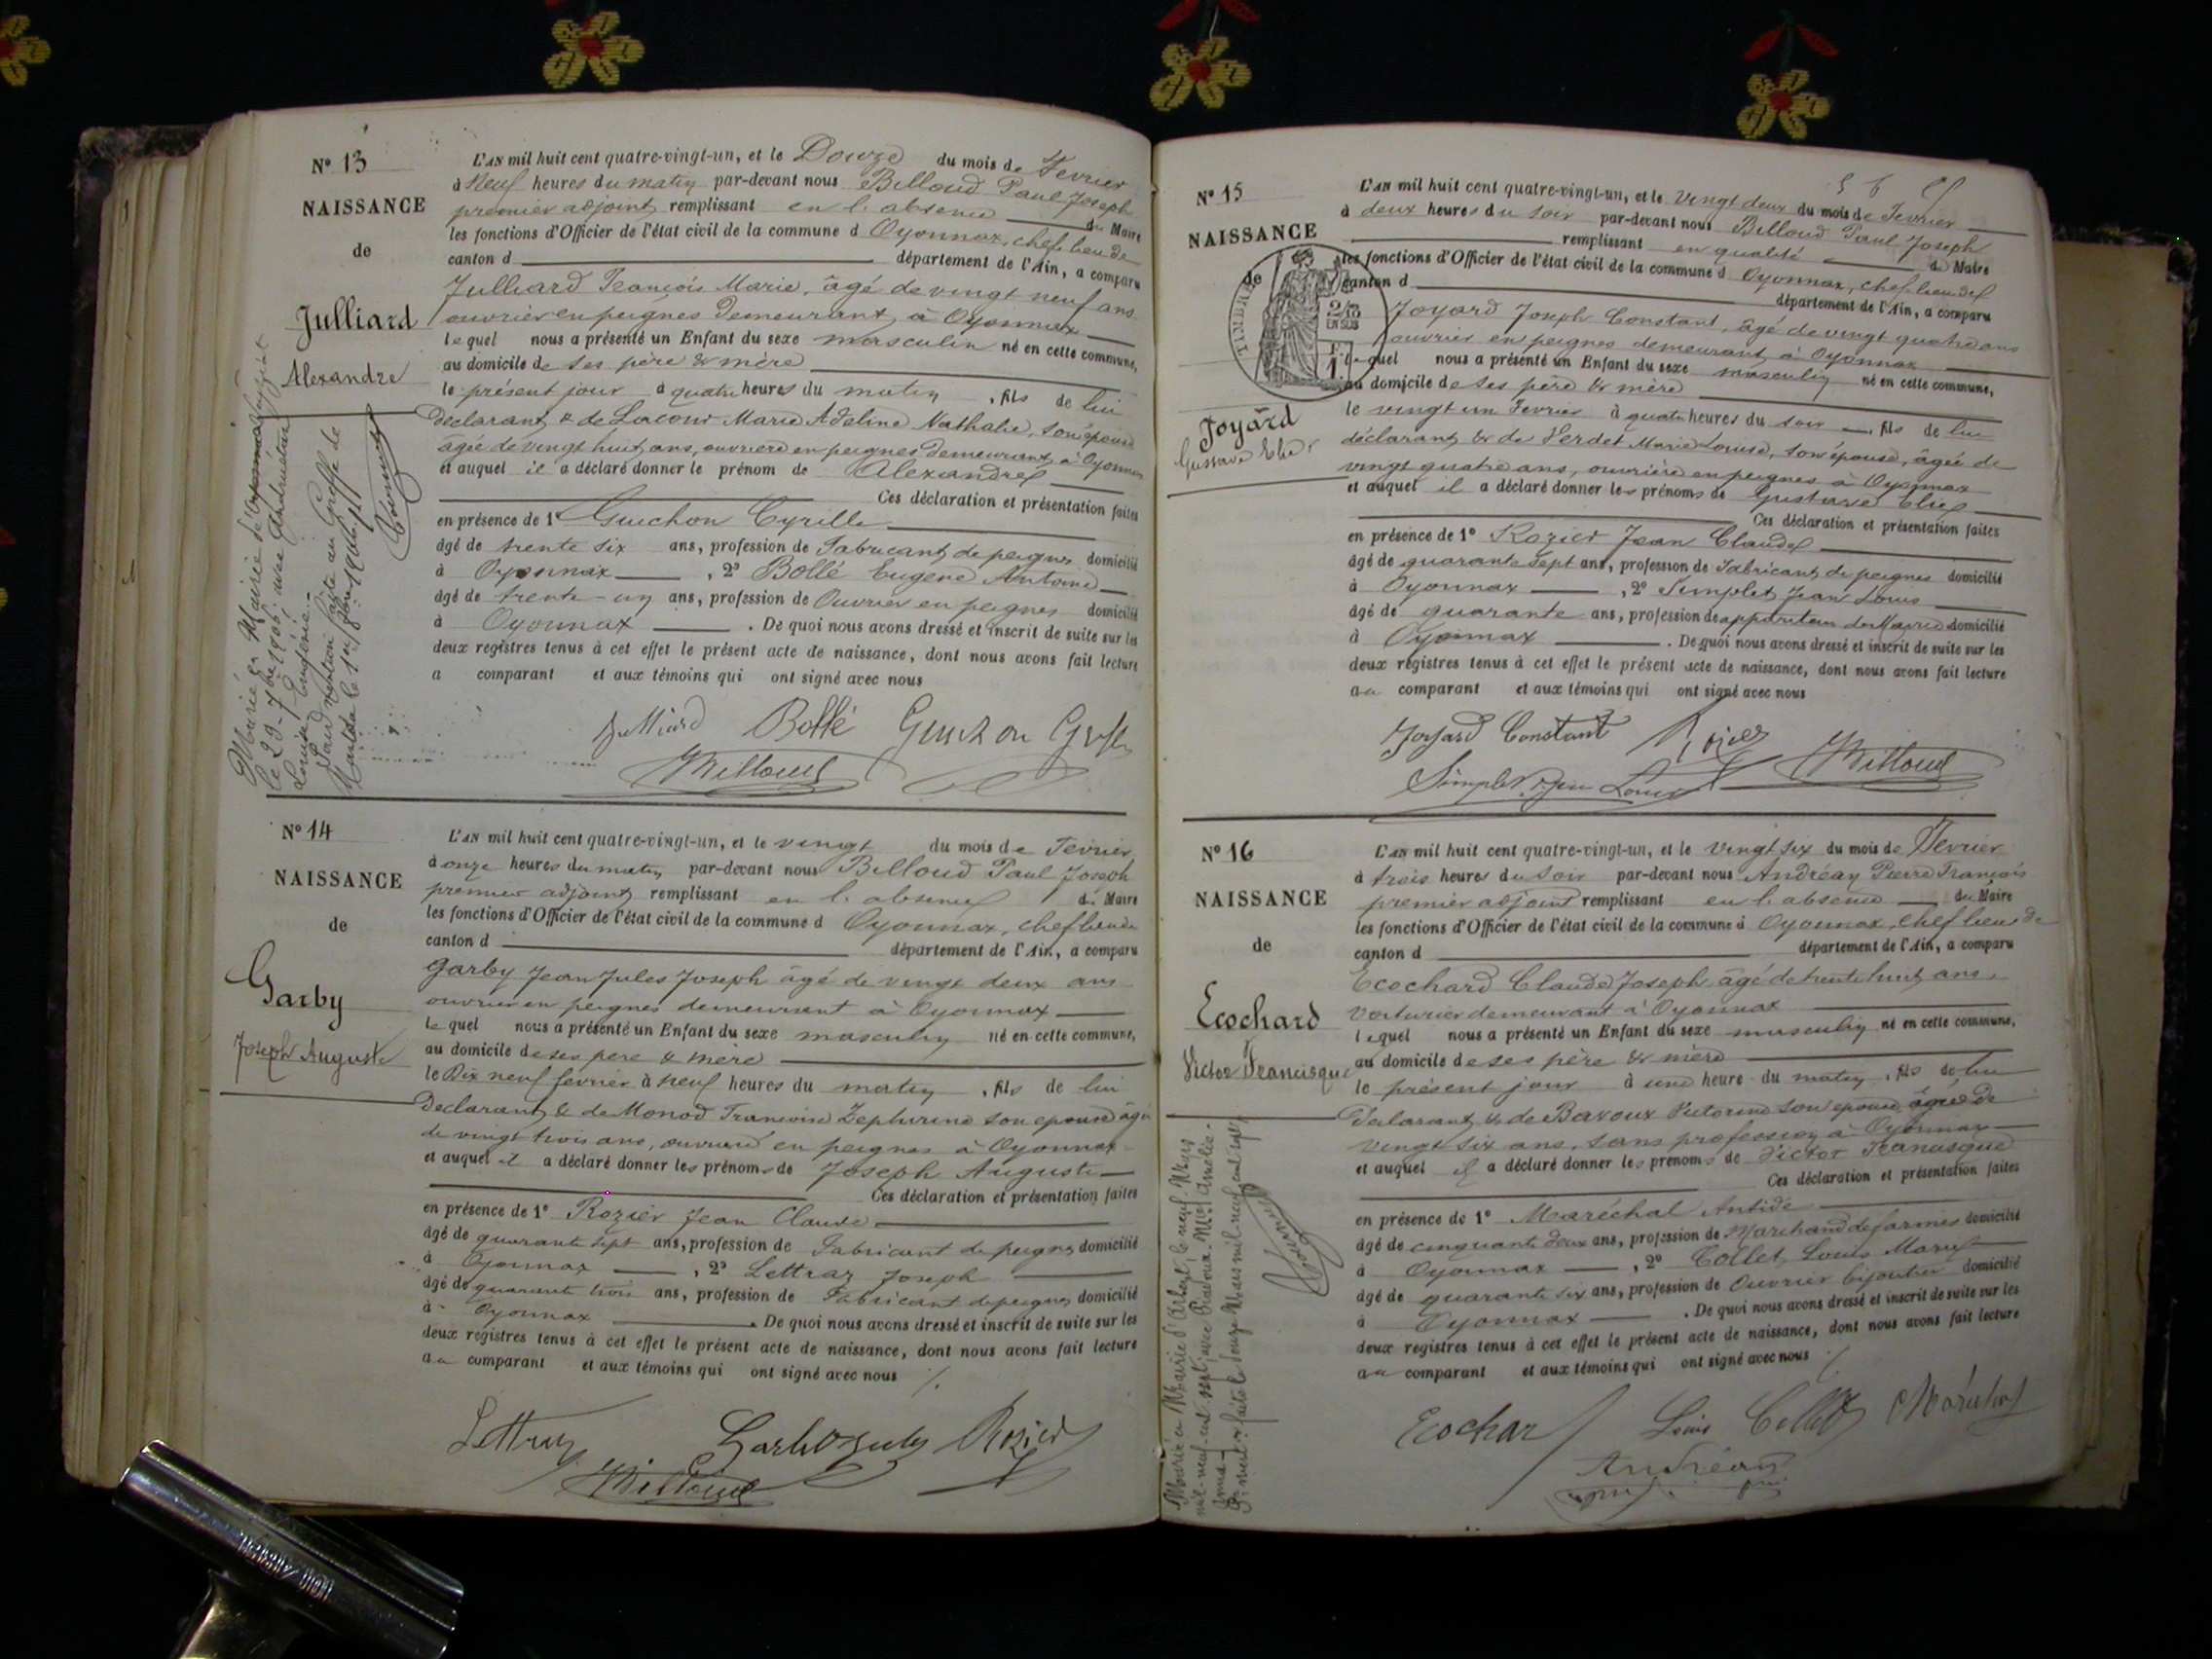 N° 13
NAISSANCE
de
Julliard
Alexandre
L'AN mil huit cent quatre-vingt-un, et le Douze du mois de Fevrier
à Neuf heures du matin par-devant nous Billoud Paul Joseph
premier adjoint remplissant en l'absence du Maire
les fonctions d'Officier de l'état civil de la commune d Oyonnax, chef lieu de
canton d département de l'Ain, a comparu
Julliard François Marie, âgé de vingt neuf ans
ouvrier en peignes demeurant à Oyonnax
lequel nous a présenté un Enfant du sexe masculin né en cette commune,
au domicile de ses père & mère
le présent jour à quatre heures du matin, fils de lui
Déclarant & de Lacour Marie Adeline Nathalie, son épouse
âgée de vingt huit ans, ouvriere en peignes demeurant à Oyonnax
et auquel il a déclaré donner le prénom de Alexandre
Ces déclaration et présentation faites
en présence de 1° Guichon Cyrille
âgé de trente six ans, profession de Fabricant de peignes domicilié
à Oyonnax , 2° Bollé Eugene Antoine
âgé de trente-un ans, profession de Ouvrier en peignes domicilié
à Oyonnax . De quoi nous avons dressé et inscrit de suite sur les
deux registres tenus à cet effet le présent acte de naissance, dont nous avons fait lecture
a comparant et aux témoins qui ont signé avec nous
Julliard Bollé Guichon
Billoud
Marié en Mairie de
le 29 7bre 1906 avec
Louise Eugénie.
mention faite au Greffe de
Nantua le
N° 14
NAISSANCE
de
Garby
Joseph Auguste
L'AN mil huit cent quatre-vingt-un, et le vingt du mois de Fevrier
à onze heures du matin par-devant nous Billoud Paul Joseph
premier adjoint remplissant en l'absence du Maire
les fonctions d'Officier de l'état civil de la commune d Oyonnax, chef lieu de
canton d département de l'Ain, a comparu
Garby Jean Jules Joseph âgé de vingt deux ans
ouvrier en peignes demeurant à Oyonnax
lequel nous a présenté un Enfant du sexe masculin né en cette commune,
au domicile de ses père & mère
le Dix neuf fevrier à neuf heures du matin, fils de lui
Declarant & de Monod Francoise Zephirine son epouse âgée
de vingt trois ans, ouvriere en peignes à Oyonnax
et auquel il a déclaré donner les prénoms de Joseph Auguste
Ces déclaration et présentation faites
en présence de 1° Rozier Jean Claude
âgé de quarante sept ans, profession de Fabricant de peignes domicilié
à Oyonnax , 2° Lettraz Joseph
âgé de quarante trois ans, profession de Fabricant de peignes domicilié
à Oyonnax . De quoi nous avons dressé et inscrit de suite sur les
deux registres tenus à cet effet le présent acte de naissance, dont nous avons fait lecture
au comparant et aux témoins qui ont signé avec nous
Lettraz Garby Jules Rozier
Billoud
N° 15
NAISSANCE
de
TIMBRE
2/10
EN SUS
Joyard
Gustave Elie
L'AN mil huit cent quatre-vingt-un, et le vingt deux du mois de Fevrier
à deux heures du soir par-devant nous Billoud Paul Joseph
remplissant en qualité de Maire
les fonctions d'Officier de l'état civil de la commune d Oyonnax, chef lieu de
canton d département de l'Ain, a comparu
Joyard Joseph Constant, âgé de vingt quatre ans
ouvrier en peignes demeurant à Oyonnax
lequel nous a présenté un Enfant du sexe masculin né en cette commune,
au domicile de ses père & mère
le vingt un Fevrier à quatre heures du soir, fils de lui
déclarant & de Verdet Marie Louise, son épouse, âgée de
vingt quatre ans, ouvrière en peignes à Oyonnax
et auquel il a déclaré donner les prénoms de Gustave Elie
Ces déclaration et présentation faites
en présence de 1° Rozier Jean Claude
âgé de quarante sept ans, profession de Fabricant de peignes domicilié
à Oyonnax , 2° Simplet Jean Louis
âgé de quarante ans, profession de appariteur de Mairie domicilié
à Oyonnax . De quoi nous avons dressé et inscrit de suite sur les
deux registres tenus à cet effet le présent acte de naissance, dont nous avons fait lecture
au comparant et aux témoins qui ont signé avec nous
Joyard Constant Rozier
Simplet Jean Louis Billoud
N° 16
NAISSANCE
de
Ecochard
Victor Francisque
L'AN mil huit cent quatre-vingt-un, et le vingt six du mois de Fevrier
à trois heures du soir par-devant nous Andréan Pierre François
premier adjoint remplissant en l'absence du Maire
les fonctions d'Officier de l'état civil de la commune d Oyonnax, chef lieu de
canton d département de l'Ain, a comparu
Ecochard Claude Joseph âgé de trente huit ans
voiturier demeurant à Oyonnax
lequel nous a présenté un Enfant du sexe masculin né en cette commune,
au domicile de ses père & mère
le présent jour à une heure du matin, fils de lui
Declarant & de Bavoux Victorine son epouse âgée de
vingt six ans, sans profession à Oyonnax
et auquel il a déclaré donner les prénoms de Victor Francisque
Ces déclaration et présentation faites
en présence de 1° Maréchal Antide
âgé de cinquante deux ans, profession de Marchand de farines domicilié
à Oyonnax , 2° Collet Louis Marie
âgé de quarante six ans, profession de Ouvrier bijoutier domicilié
à Oyonnax . De quoi nous avons dressé et inscrit de suite sur les
deux registres tenus à cet effet le présent acte de naissance, dont nous avons fait lecture
au comparant et aux témoins qui ont signé avec nous
Ecochard Louis Collet Maréchal
Andréan
Marié en Mairie d'Arbent le neuf Mars
mil-neuf-cent-sept, avec